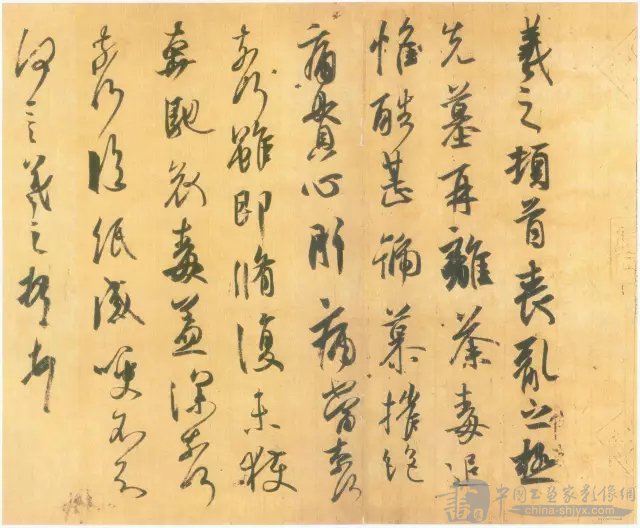 羲之頓首喪亂之極
先墓再離荼毒追
惟酷甚號慕摧絕
痛貫心肝痛當奈何
奈何雖即脩復未獲
奔馳哀毒益深奈何
奈何臨紙感哽不知
何言羲之頓首頓首
中國书画家影像網
china-shjyx.com